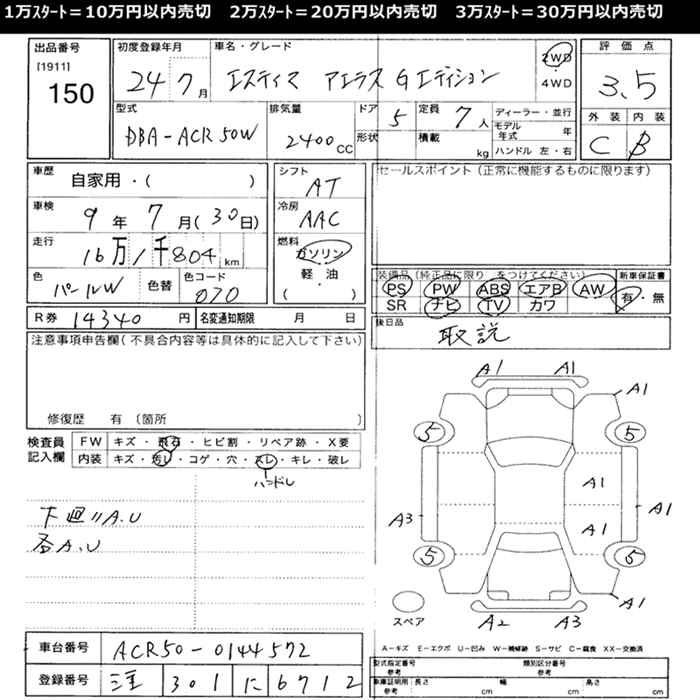 1万ｽﾀｰﾄ＝10万円以内売切　2万ｽﾀｰﾄ＝20万円以内売切　3万ｽﾀｰﾄ＝30万円以内売切
出品番号 [1911] 150
初度登録年月 24 7月
車名・グレード エスティマ アエラス Gエディション
2WD・4WD
評価点 3.5
外装 C 内装 B
型式 DBA-ACR50W
排気量 2400 CC
ドア 5 形状
定員 7人 積載 kg
ディーラー・並行
モデル年式 年
ハンドル 左・右
車歴 自家用・( )
車検 9年7月(30日)
走行 16万1千804km
色 パールW 色替 色コード 070
シフト AT
冷房 AAC
燃料 ガソリン 軽・油 ( )
セールスポイント（正常に機能するものに限ります）
装備品（純正品に限り をつけてください）
PS PW ABS エアB AW
SR ナビ TV カワ
新車保証書 有・無
R券 14340円 名変通知期限 月 日
後日品 取説
注意事項申告欄（不具合内容等は具体的に記入して下さい）
修復歴 有（箇所 ）
検査員記入欄
FW キズ・飛石・ヒビ割・リペア跡・X要
内装 キズ・汚レ・コゲ・穴・スレ・キレ・破レ
ハンドル
下廻リA.U
各A.U
A1 A1
A1
5 5
A1
A3 A1
A1
5 5
A1
スペア A2 A3
A－キズ E－エクボ U－凹み W－補修跡 S－サビ C－腐食 XX－交換済
車台番号 ACR50-0144572
登録番号 301 に 6712
型式指定番号 参考 類別区分番号 参考
車庫証明用 参考 長さ cm 幅 cm 高さ cm